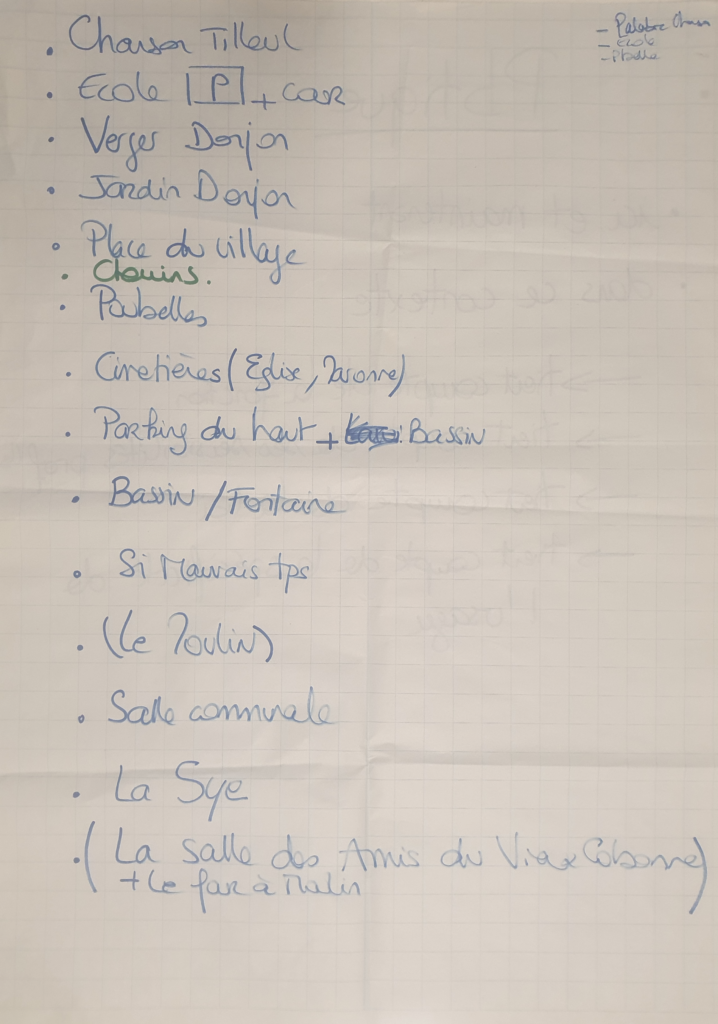 - Palabre Charson
- Ecole
- Pbelle
• Charson Tilleul
• Ecole P + car
• Verger Donjon
• Jardin Donjon
• Place du village
• Chemins.
• Poubelles
• Cimetières (Eglise, Maronne)
• Parking du haut + Bassin
• Bassin / Fontaine
• Si Mauvais tps
• (Le Moulin)
• Salle communale
• La Sye
• (La Salle des Amis du Vieux Cobonne)
+ Le four à Malin